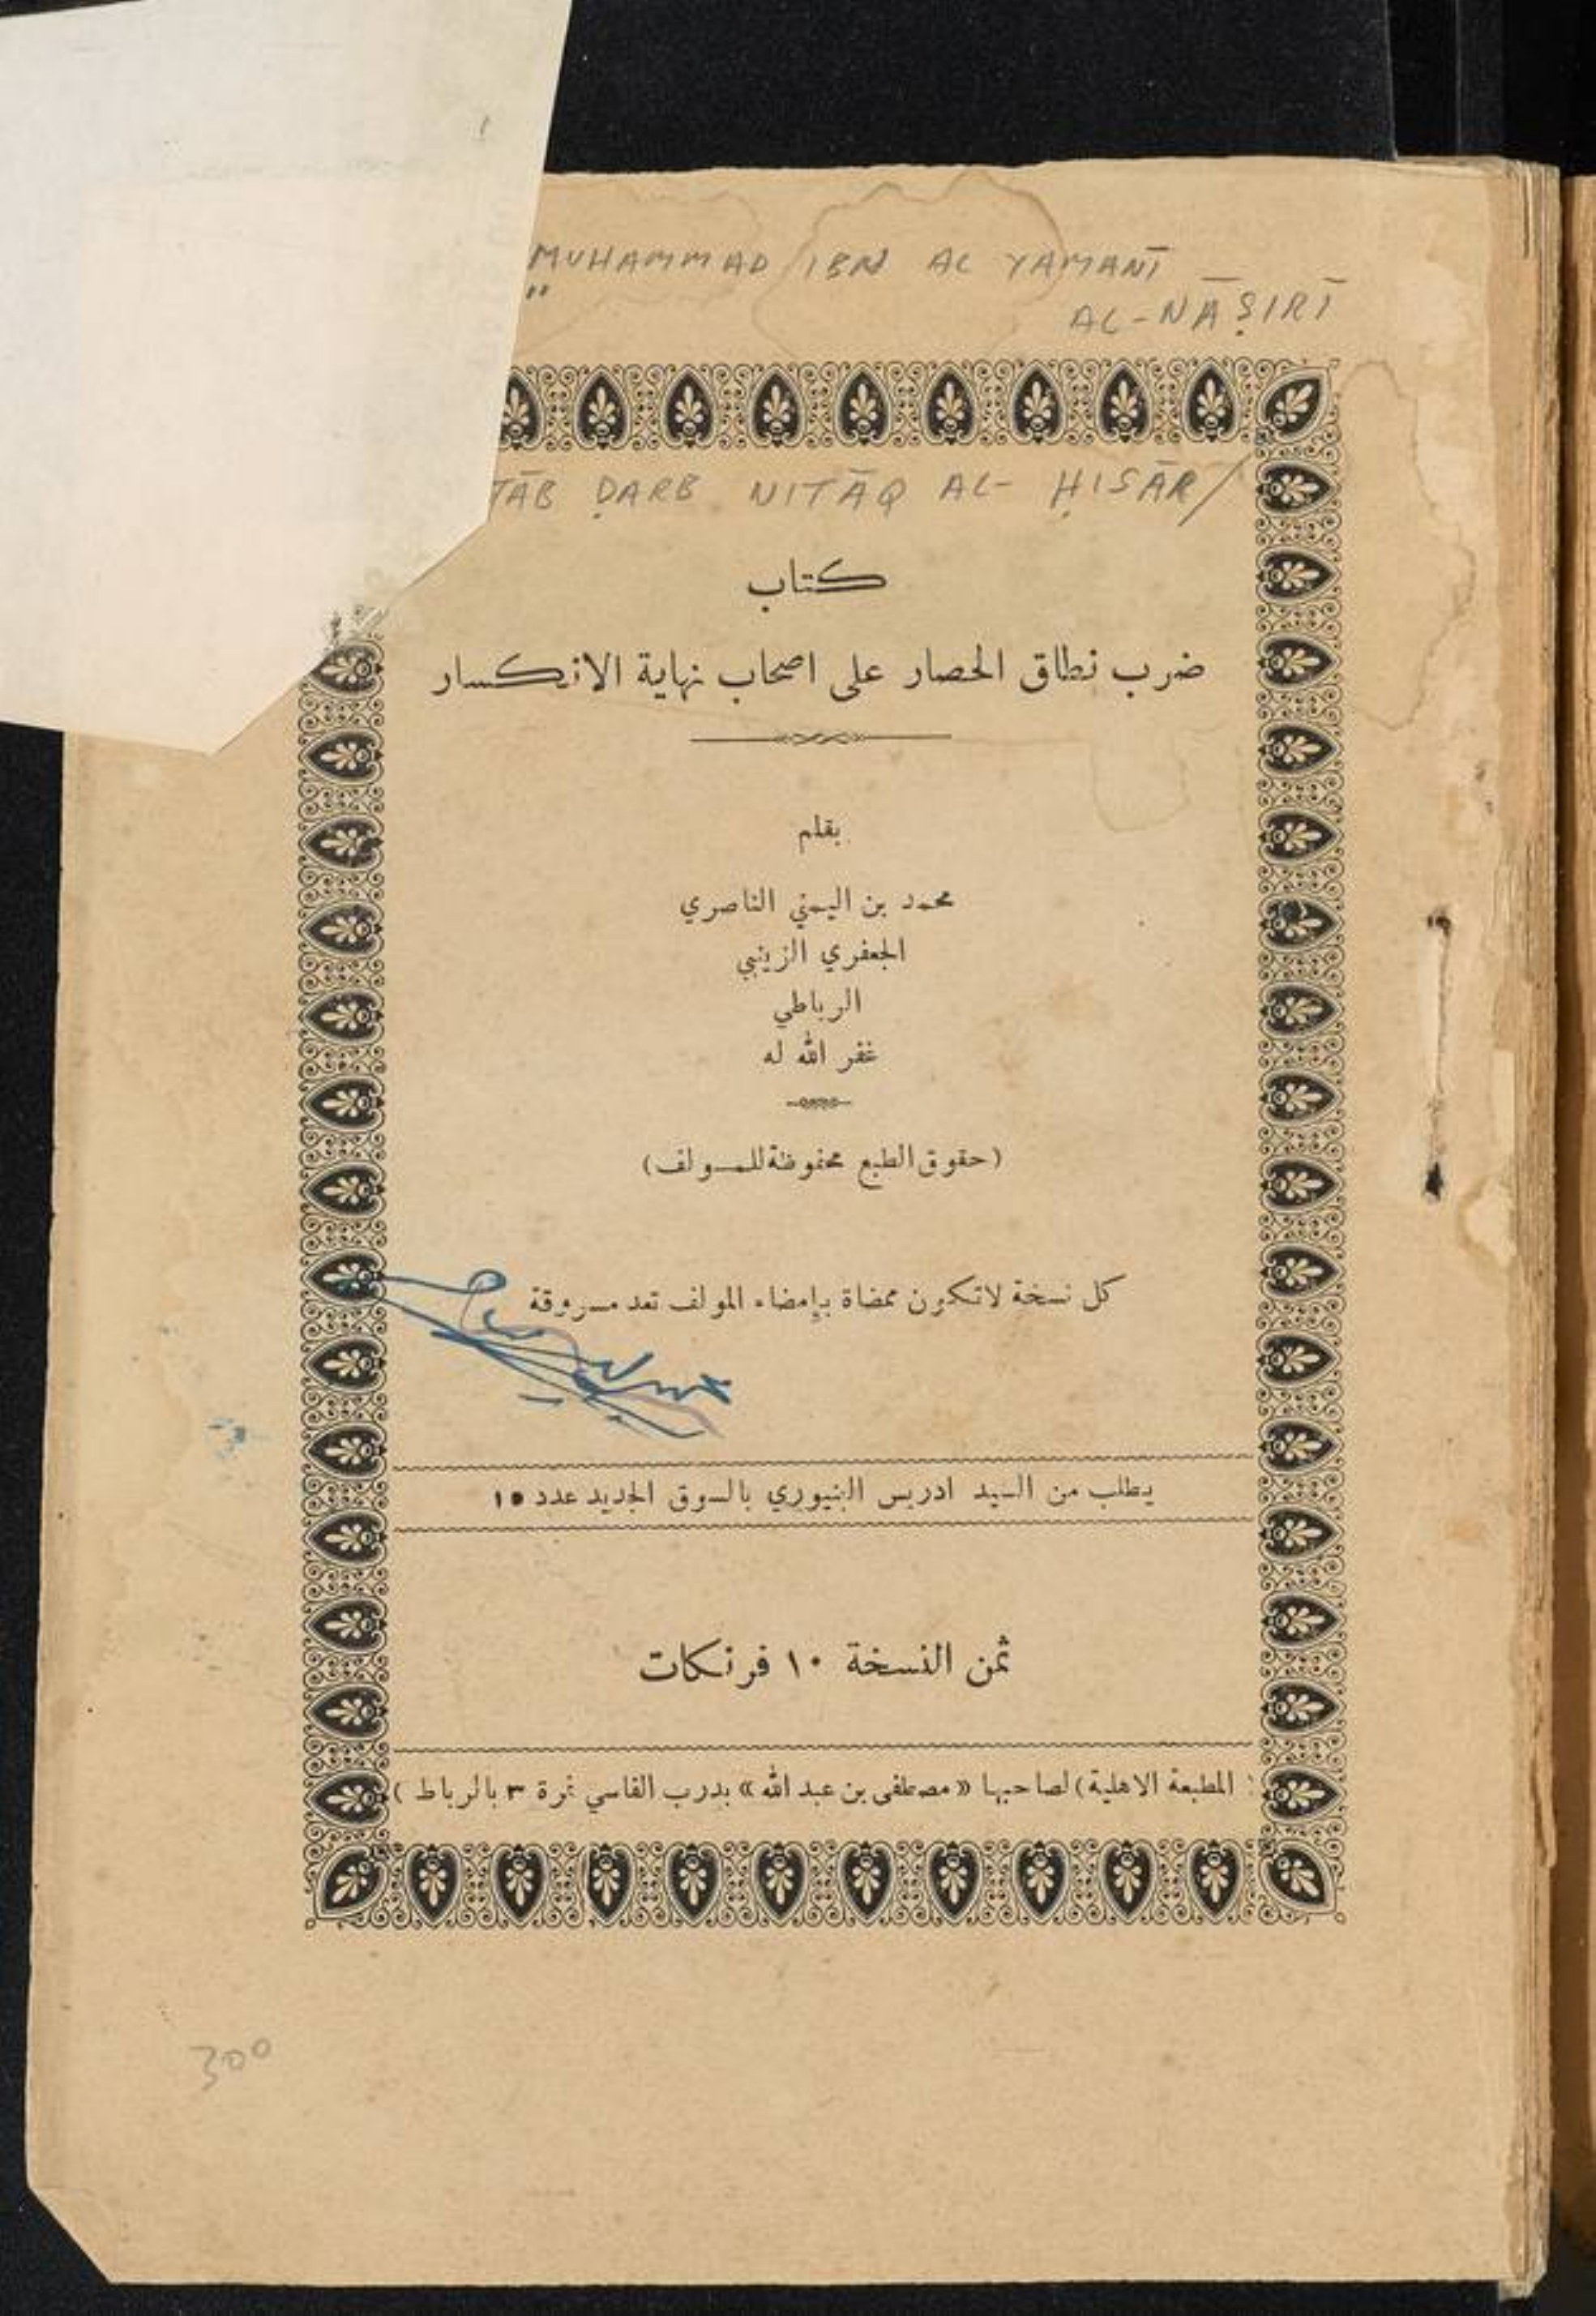 MUHAMMAD IBN AL YAMANĪ
"
AL-NĀṢIRĪ
TĀB ḌARB NITĀQ AL- ḤISĀR/
كتاب
ضرب نطاق الحصار على اصحاب نهاية الانكسار
بقلم
محمد بن اليمني الناصري
الجعفري الزينبي
الرباطي
غفر الله له
(حقوق الطبع محفوظة للمولف)
كل نسخة لاتكون ممضاة بإمضاء المولف تعد مسروقة
يطلب من السيد ادريس البنيوري بالسوق الجديد عدد ١٥
ثمن النسخة ١٠ فرنكات
المطبعة الاهلية) لصاحبها « مصطفى بن عبد الله » بدرب الفاسي نمرة ٣ بالرباط )
300